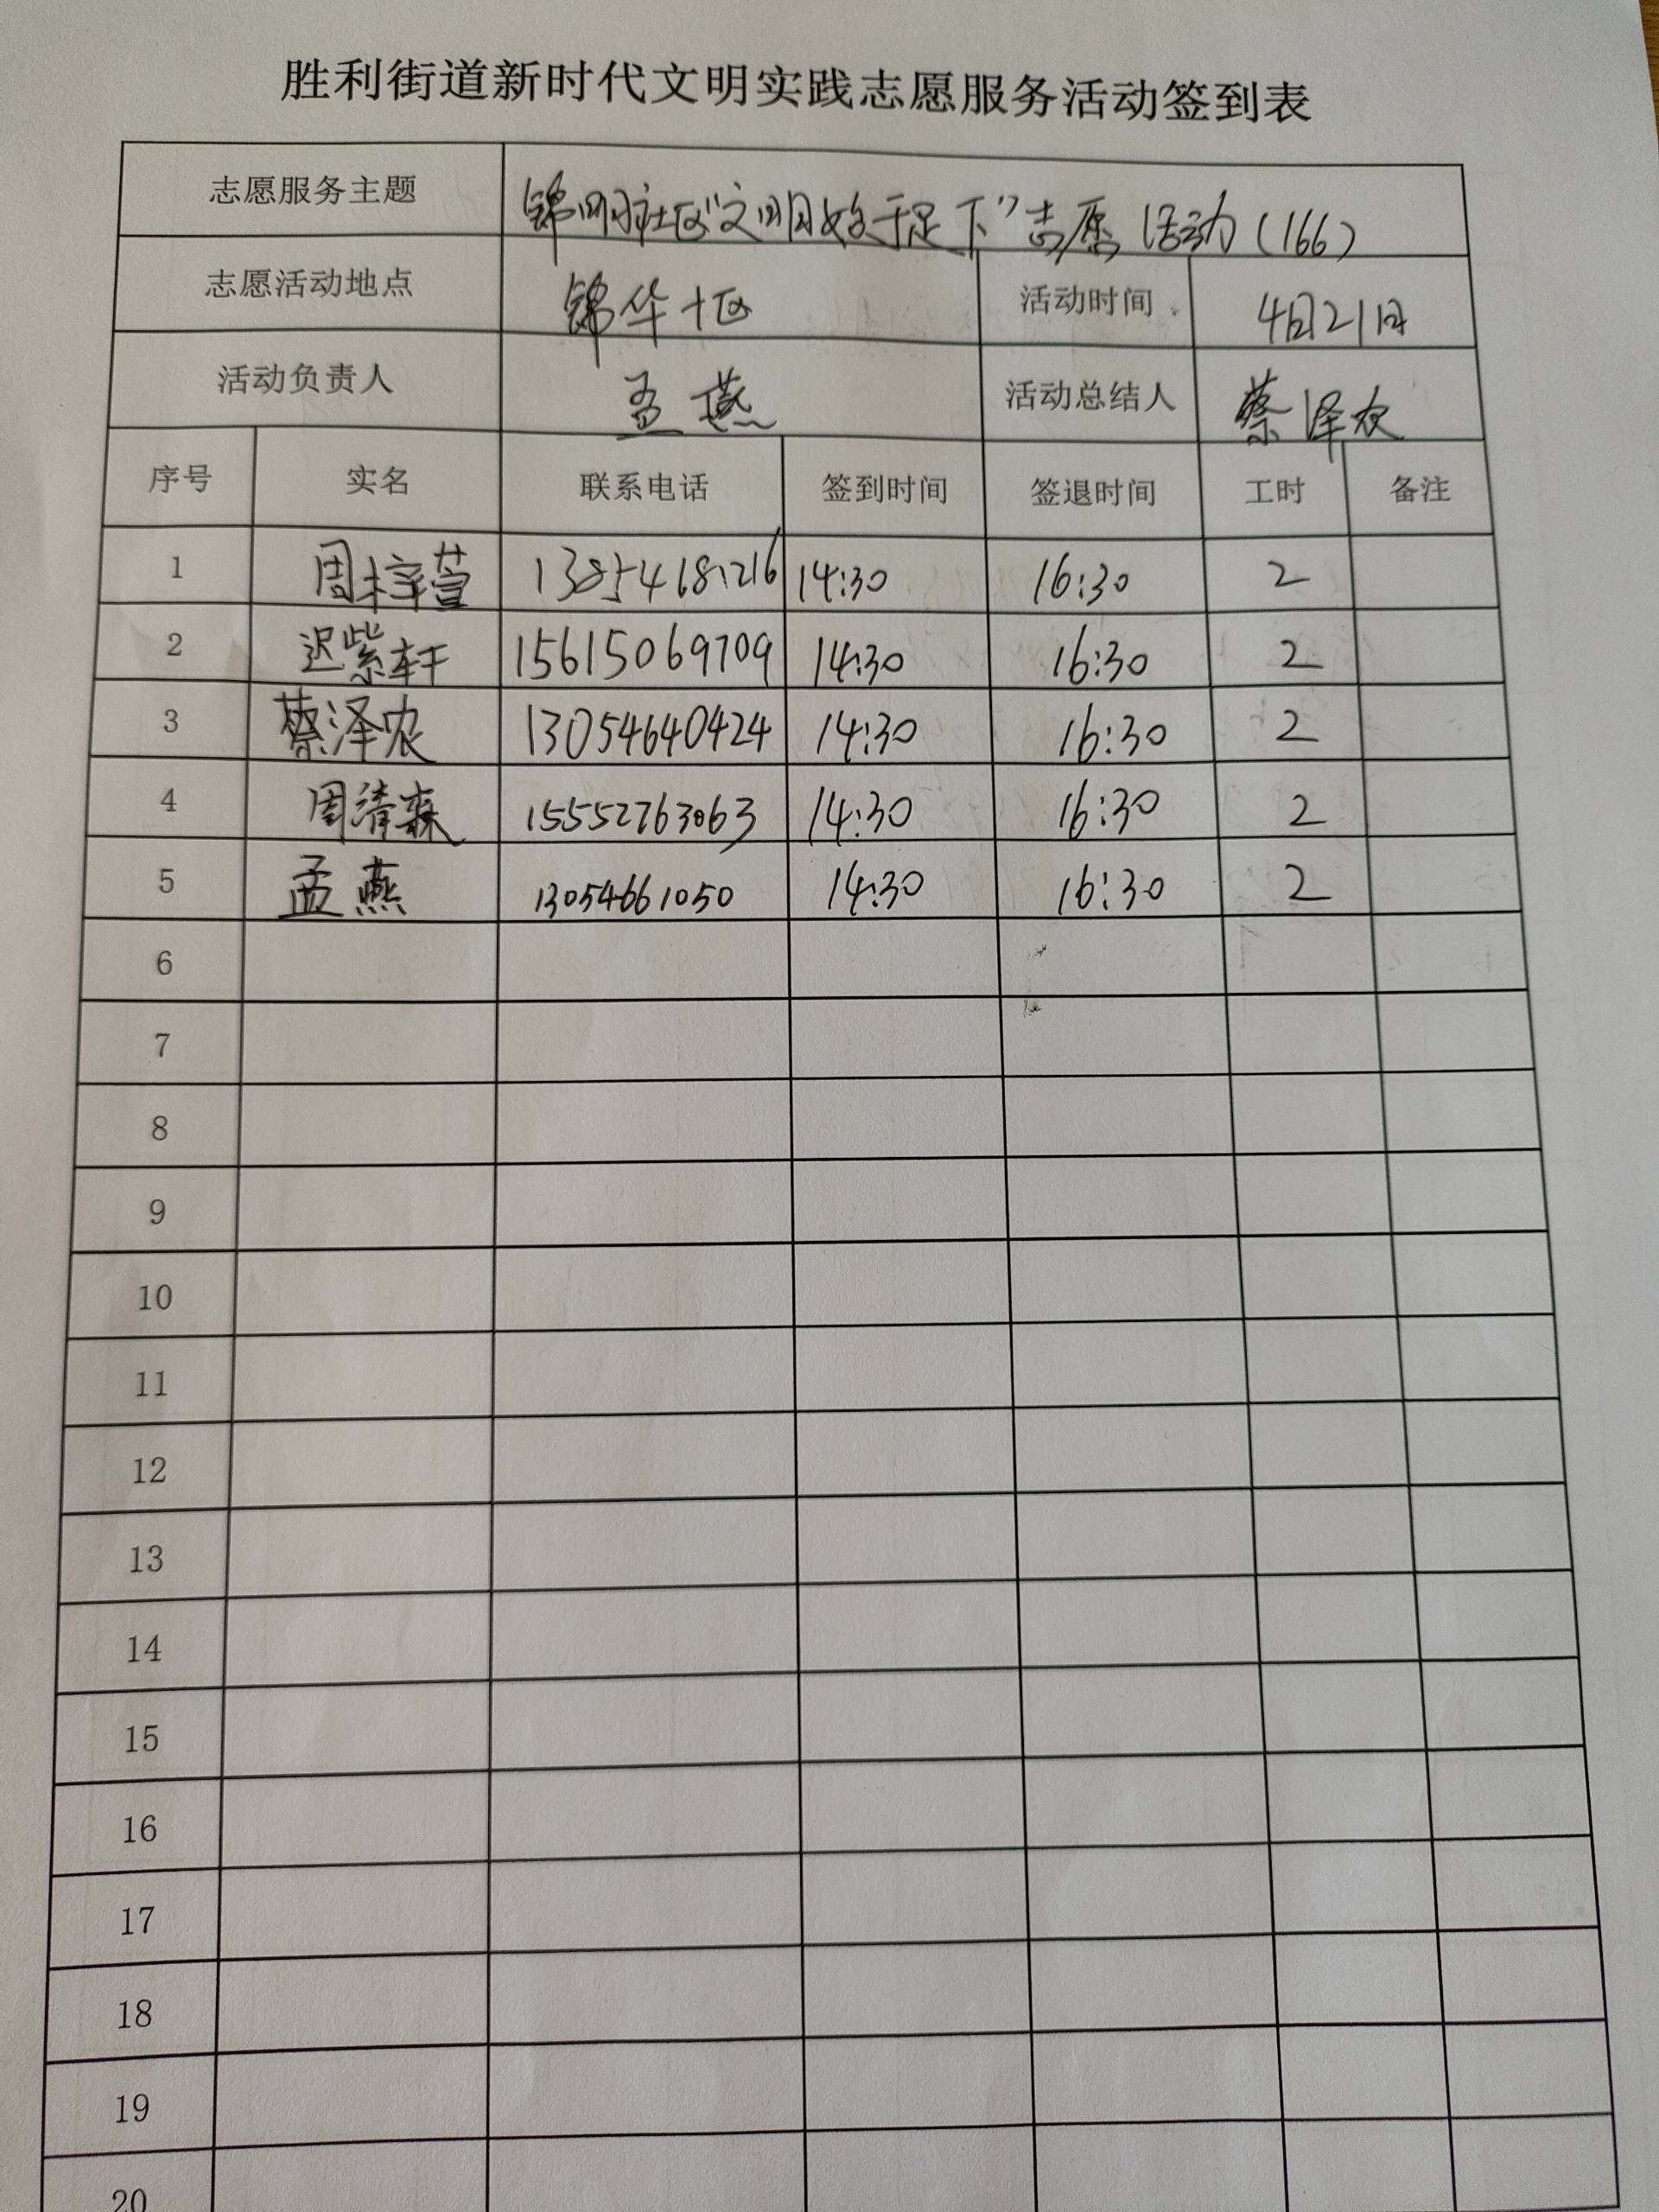 胜利街道新时代文明实践志愿服务活动签到表
志愿服务主题 锦明社区“文明始于足下”志愿活动(166)
志愿活动地点 锦华十区 活动时间 4月21日
活动负责人 孟燕 活动总结人 蔡泽农
序号 实名 联系电话 签到时间 签退时间 工时 备注
1 周梓萱 13854681216 14:30 16:30 2
2 迟紫轩 15615069709 14:30 16:30 2
3 蔡泽农 13054640424 14:30 16:30 2
4 周清森 15552763063 14:30 16:30 2
5 孟燕 13054661050 14:30 16:30 2
6
7
8
9
10
11
12
13
14
15
16
17
18
19
20